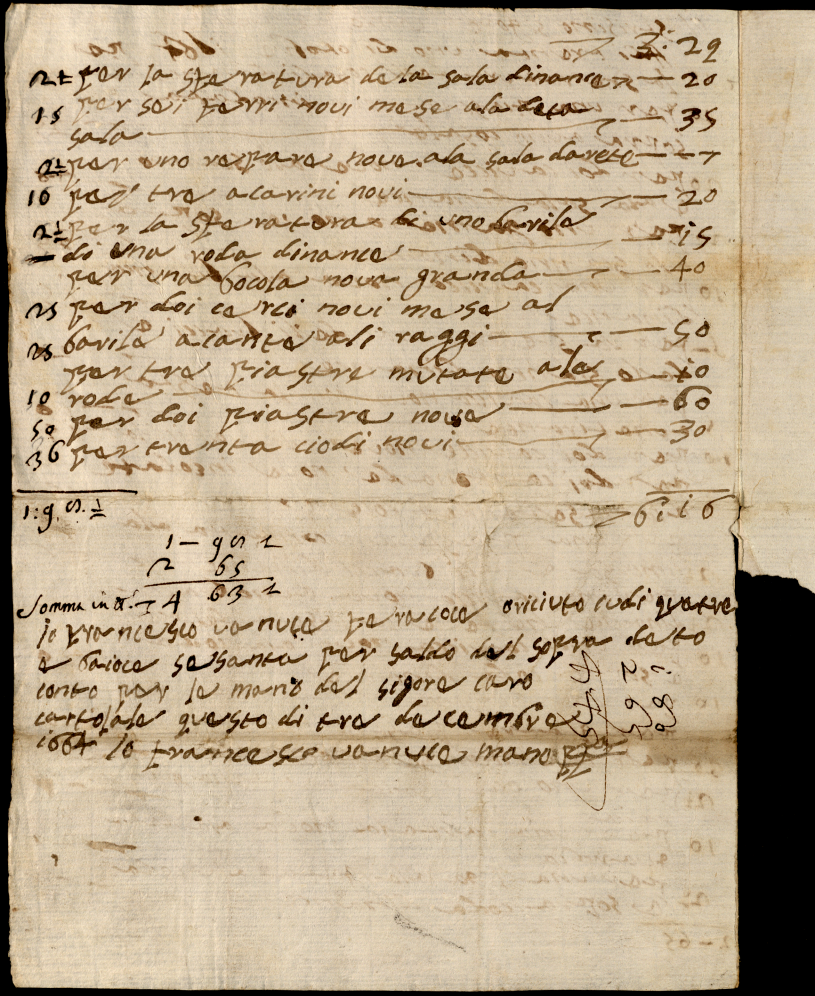 3: 29
22 per la sferatura de la sala dinance — 20
15 per sei ferri novi mese ala deta — 35
sala
per uno repare nove ala sala darete
16 per tre acarini novi — 20
per la sferatura di uno barile
di una roda dinance — 15
per una bocola nova granda — 40
25 per doi cerci novi mese al
barile acante ali raggi — 50
per tre piastre mutate ale
10 rode — 10
50 per doi piastre nove — 60
36 per trenta ciodi novi — 30
1: 9 6 i i 6
1 — 9
2 65
Somma in 4 63
Io francesco vanuce feracoce oriciuto scudi quatre
e baioce sesanta per saldo del sopra deto
conto per le mano del sigore caro
cartolale questo di tre decembre
1664 Io francesco vanuce mano
i 80
2 65
4 45